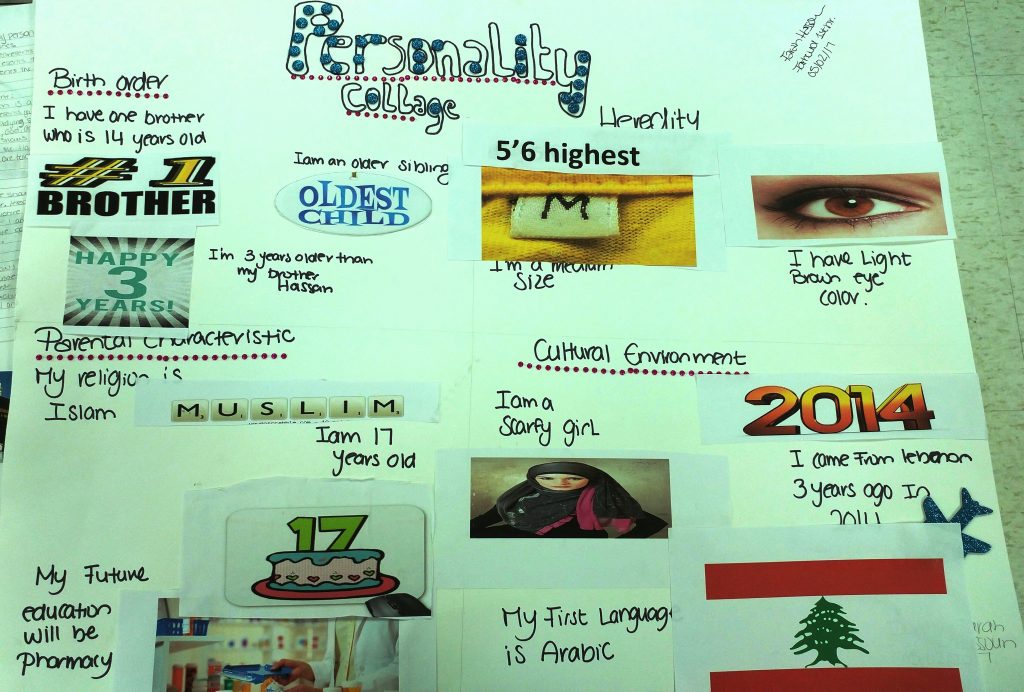 Personality
Collage
05/02/17
Birth order
I have one brother
who is 14 years old
# 1
BROTHER
I am an older sibling
OLDEST
CHILD
HAPPY
3
YEARS!
I'm 3 years older than
my brother
Hassan
Heredity
5'6 highest
M
I'm a medium
size
I have Light
Brown eye
color.
Parental Characteristic
My religion is
Islam
MUSLIM
I am 17
years old
17
My Future
education
will be
Pharmacy
Cultural Environment
I am a
Scarfy girl
2014
I came From lebanon
3 years ago In
2014
My First Languag
is Arabic